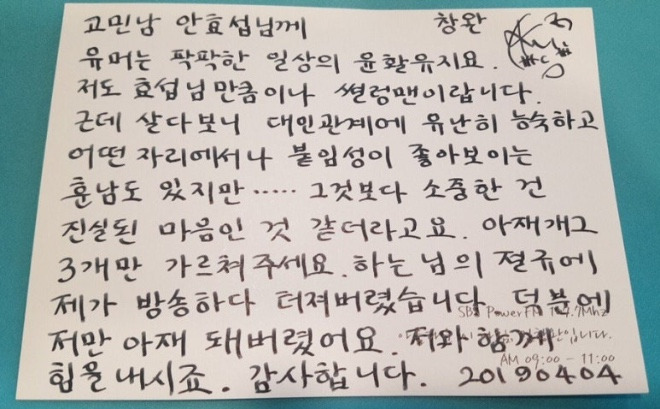 고민남 안효섭님께 창완
유머는 팍팍한 일상의 윤활유지요.
저도 효섭님만큼이나 썰렁맨이랍니다.
근데 살다보니 대인관계에 유난히 능숙하고
어떤 자리에서나 붙임성이 좋아보이는
훈남도 있지만····· 그것보다 소중한 건
진실된 마음인 것 같더라고요. 아재개그
3개만 가르쳐주세요. 하는 님의 절규에
제가 방송하다 터져버렸습니다. 덕분에
SBS PowerFM 107.7Mhz
저만 아재 돼버렸어요. 저와 함께
입니다.
AM 09:00 - 11:00
힘을 내시죠. 감사합니다. 20190404